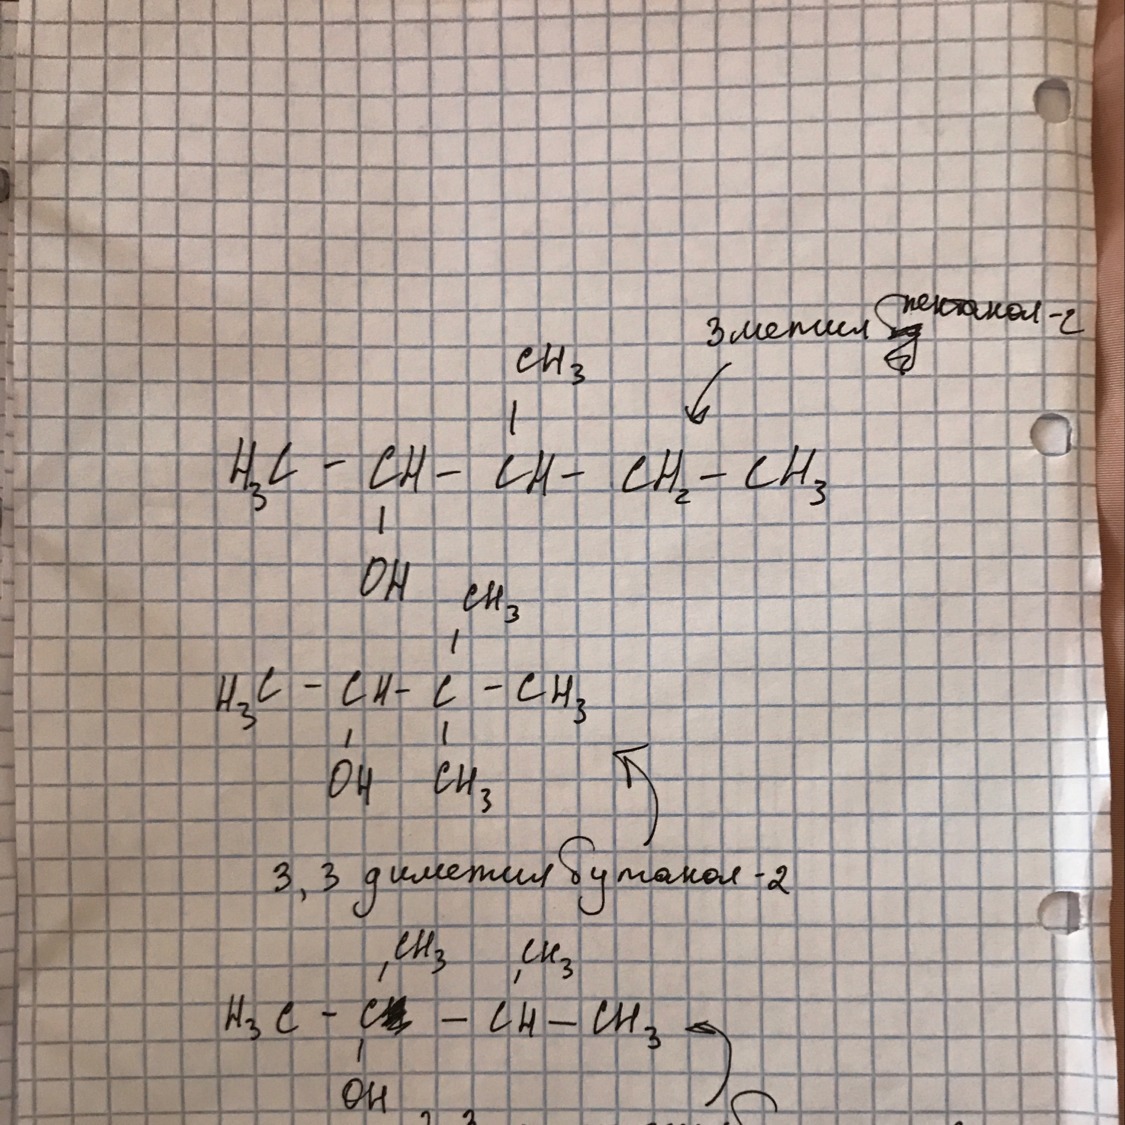 3 метил пентанол-2
CH3
H3C - CH - CH - CH2 - CH3
OH
CH3
H3C - CH - C - CH3
OH CH3
3, 3 диметилбутанол-2
CH3 CH3
H3C - C - CH - CH3
OH